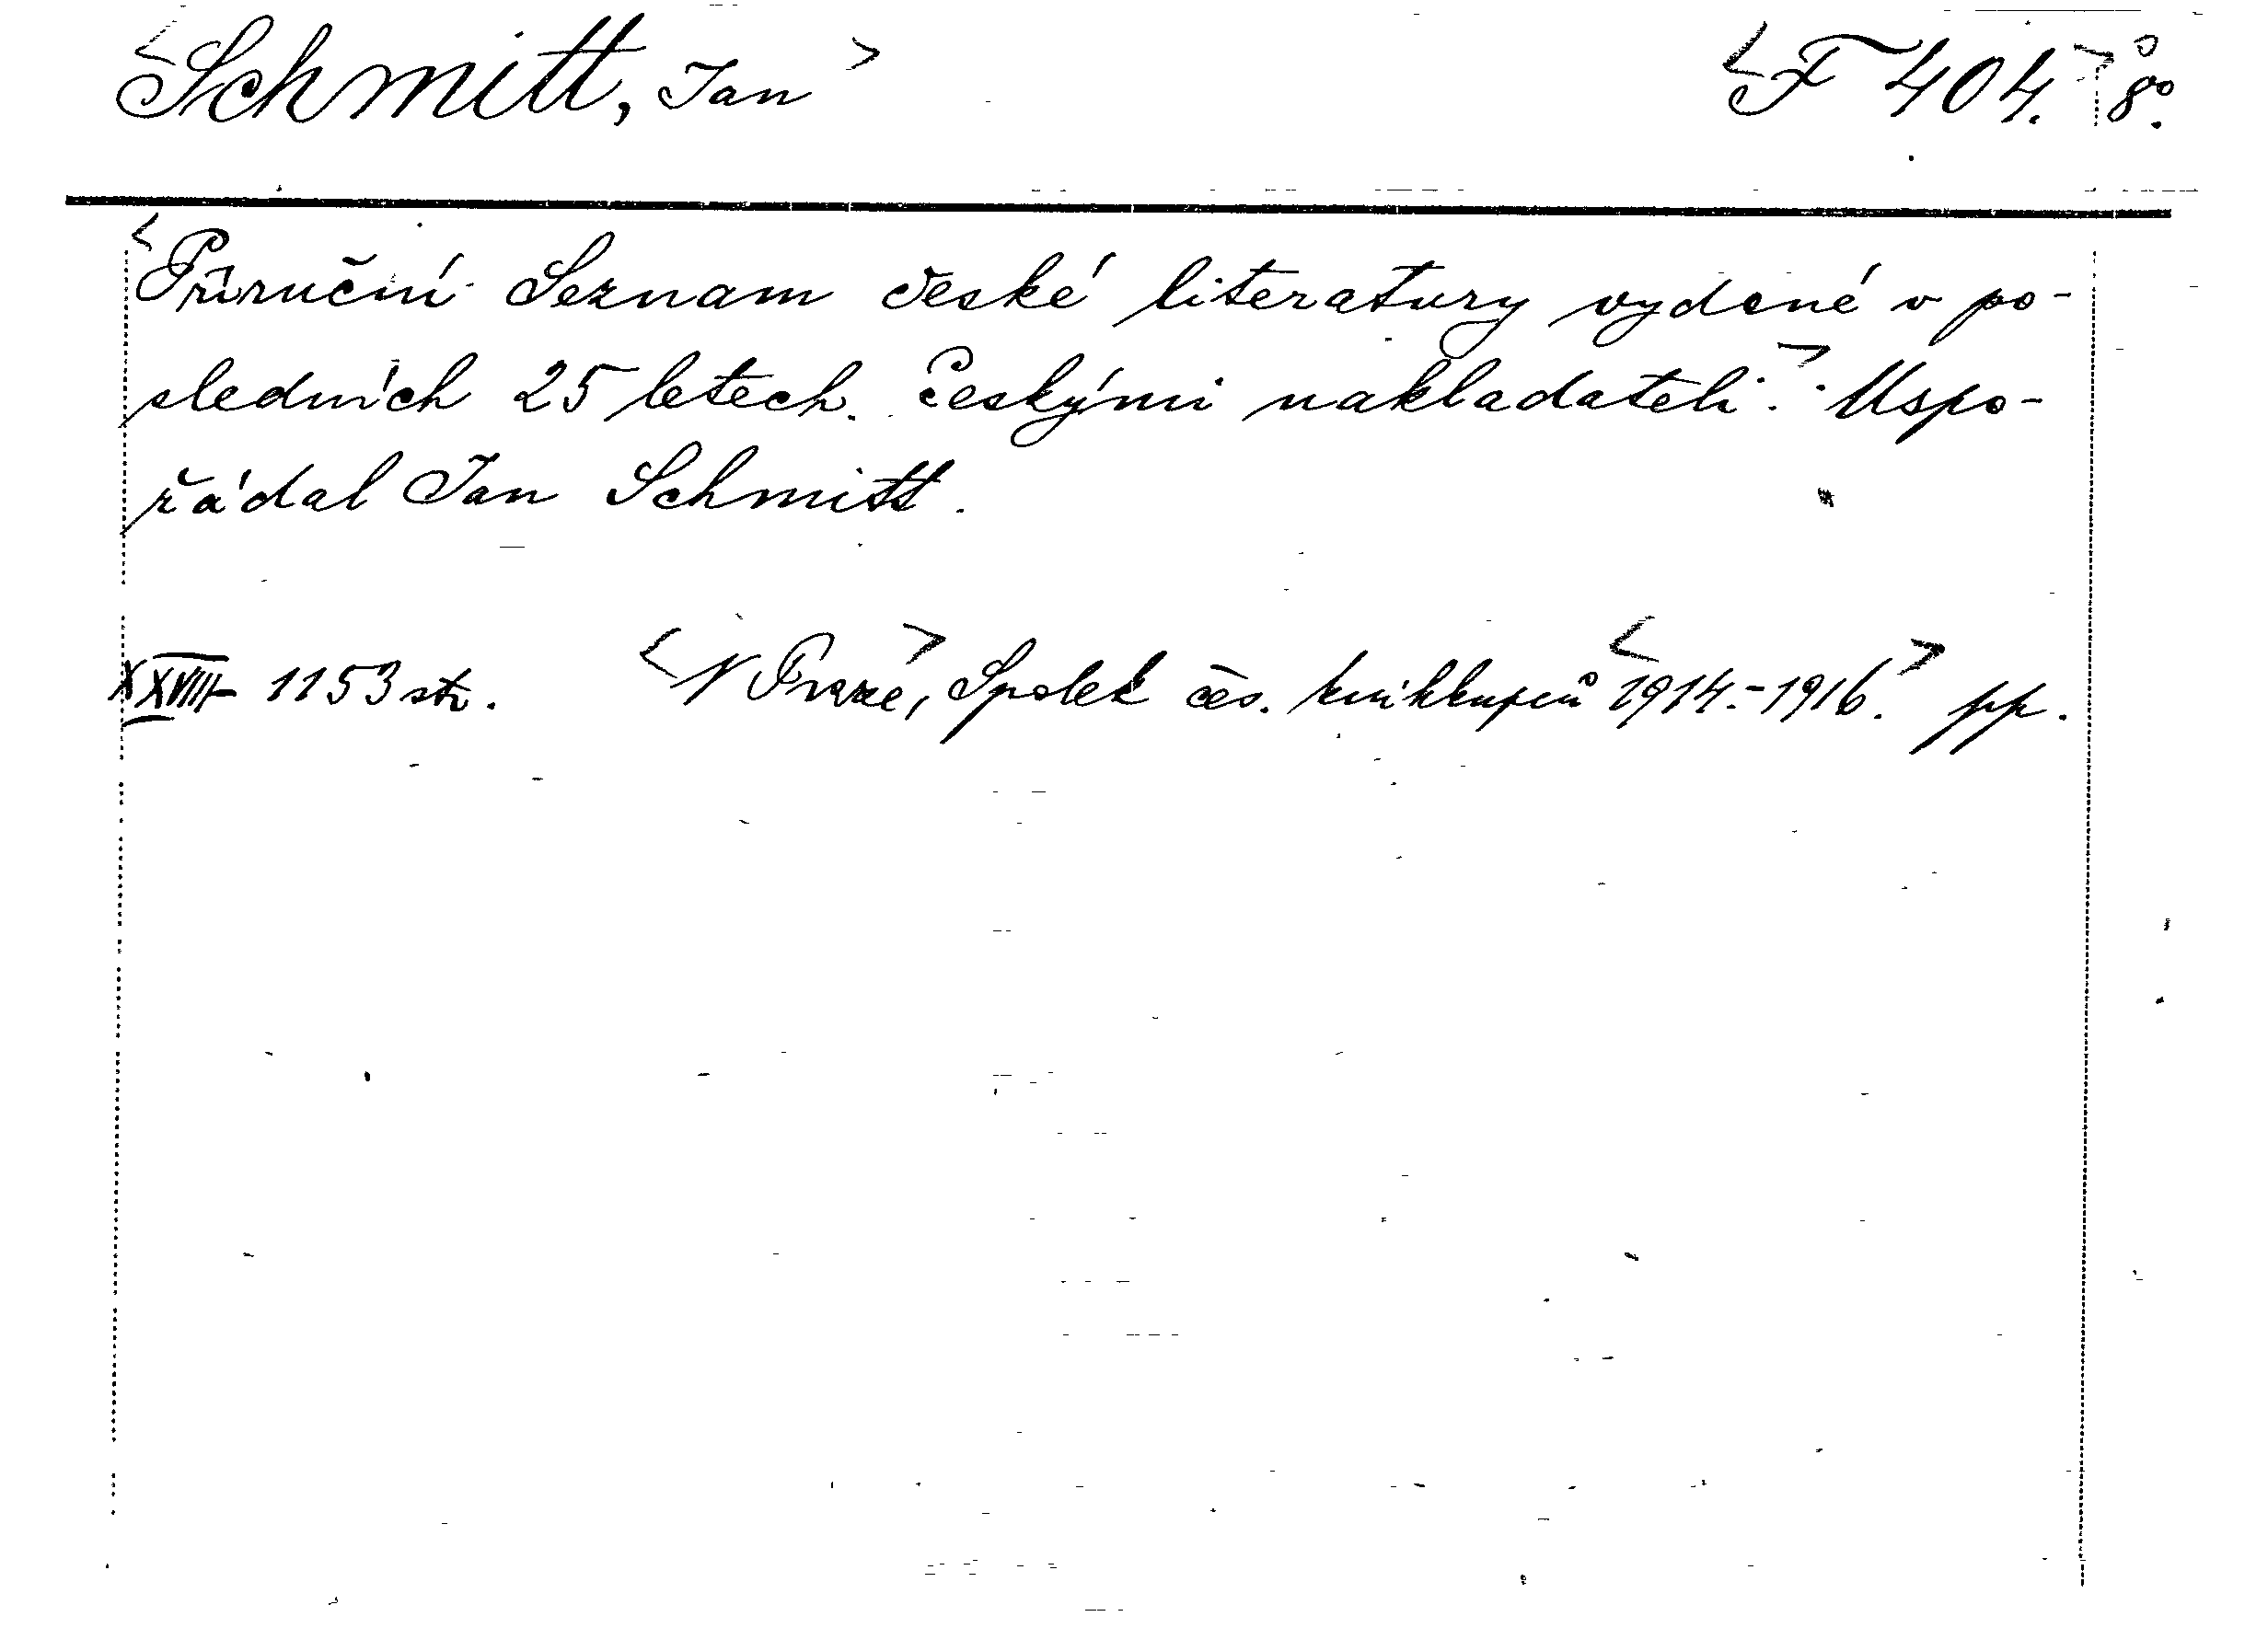 <Schmitt, Jan> <F 404.> 8°.
<Příruční Seznam české literatury vydané v po-
sledních 25 letech českými nakladateli.> Uspo-
řádal Jan Schmitt.
XXVIII- 1153 str. <V Praze>, Spolek čes. knihkupců <1914.-1916.> pp.